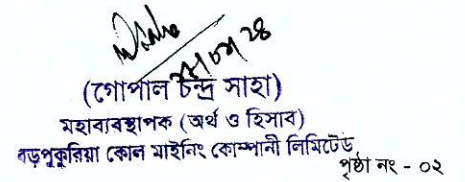 (গোপাল চন্দ্র সাহা)
মহাব্যবস্থাপক (অর্থ ও হিসাব)
বড়পুকুরিয়া কোল মাইনিং কোম্পানী লিমিটেড
পৃষ্ঠা নং - ০২